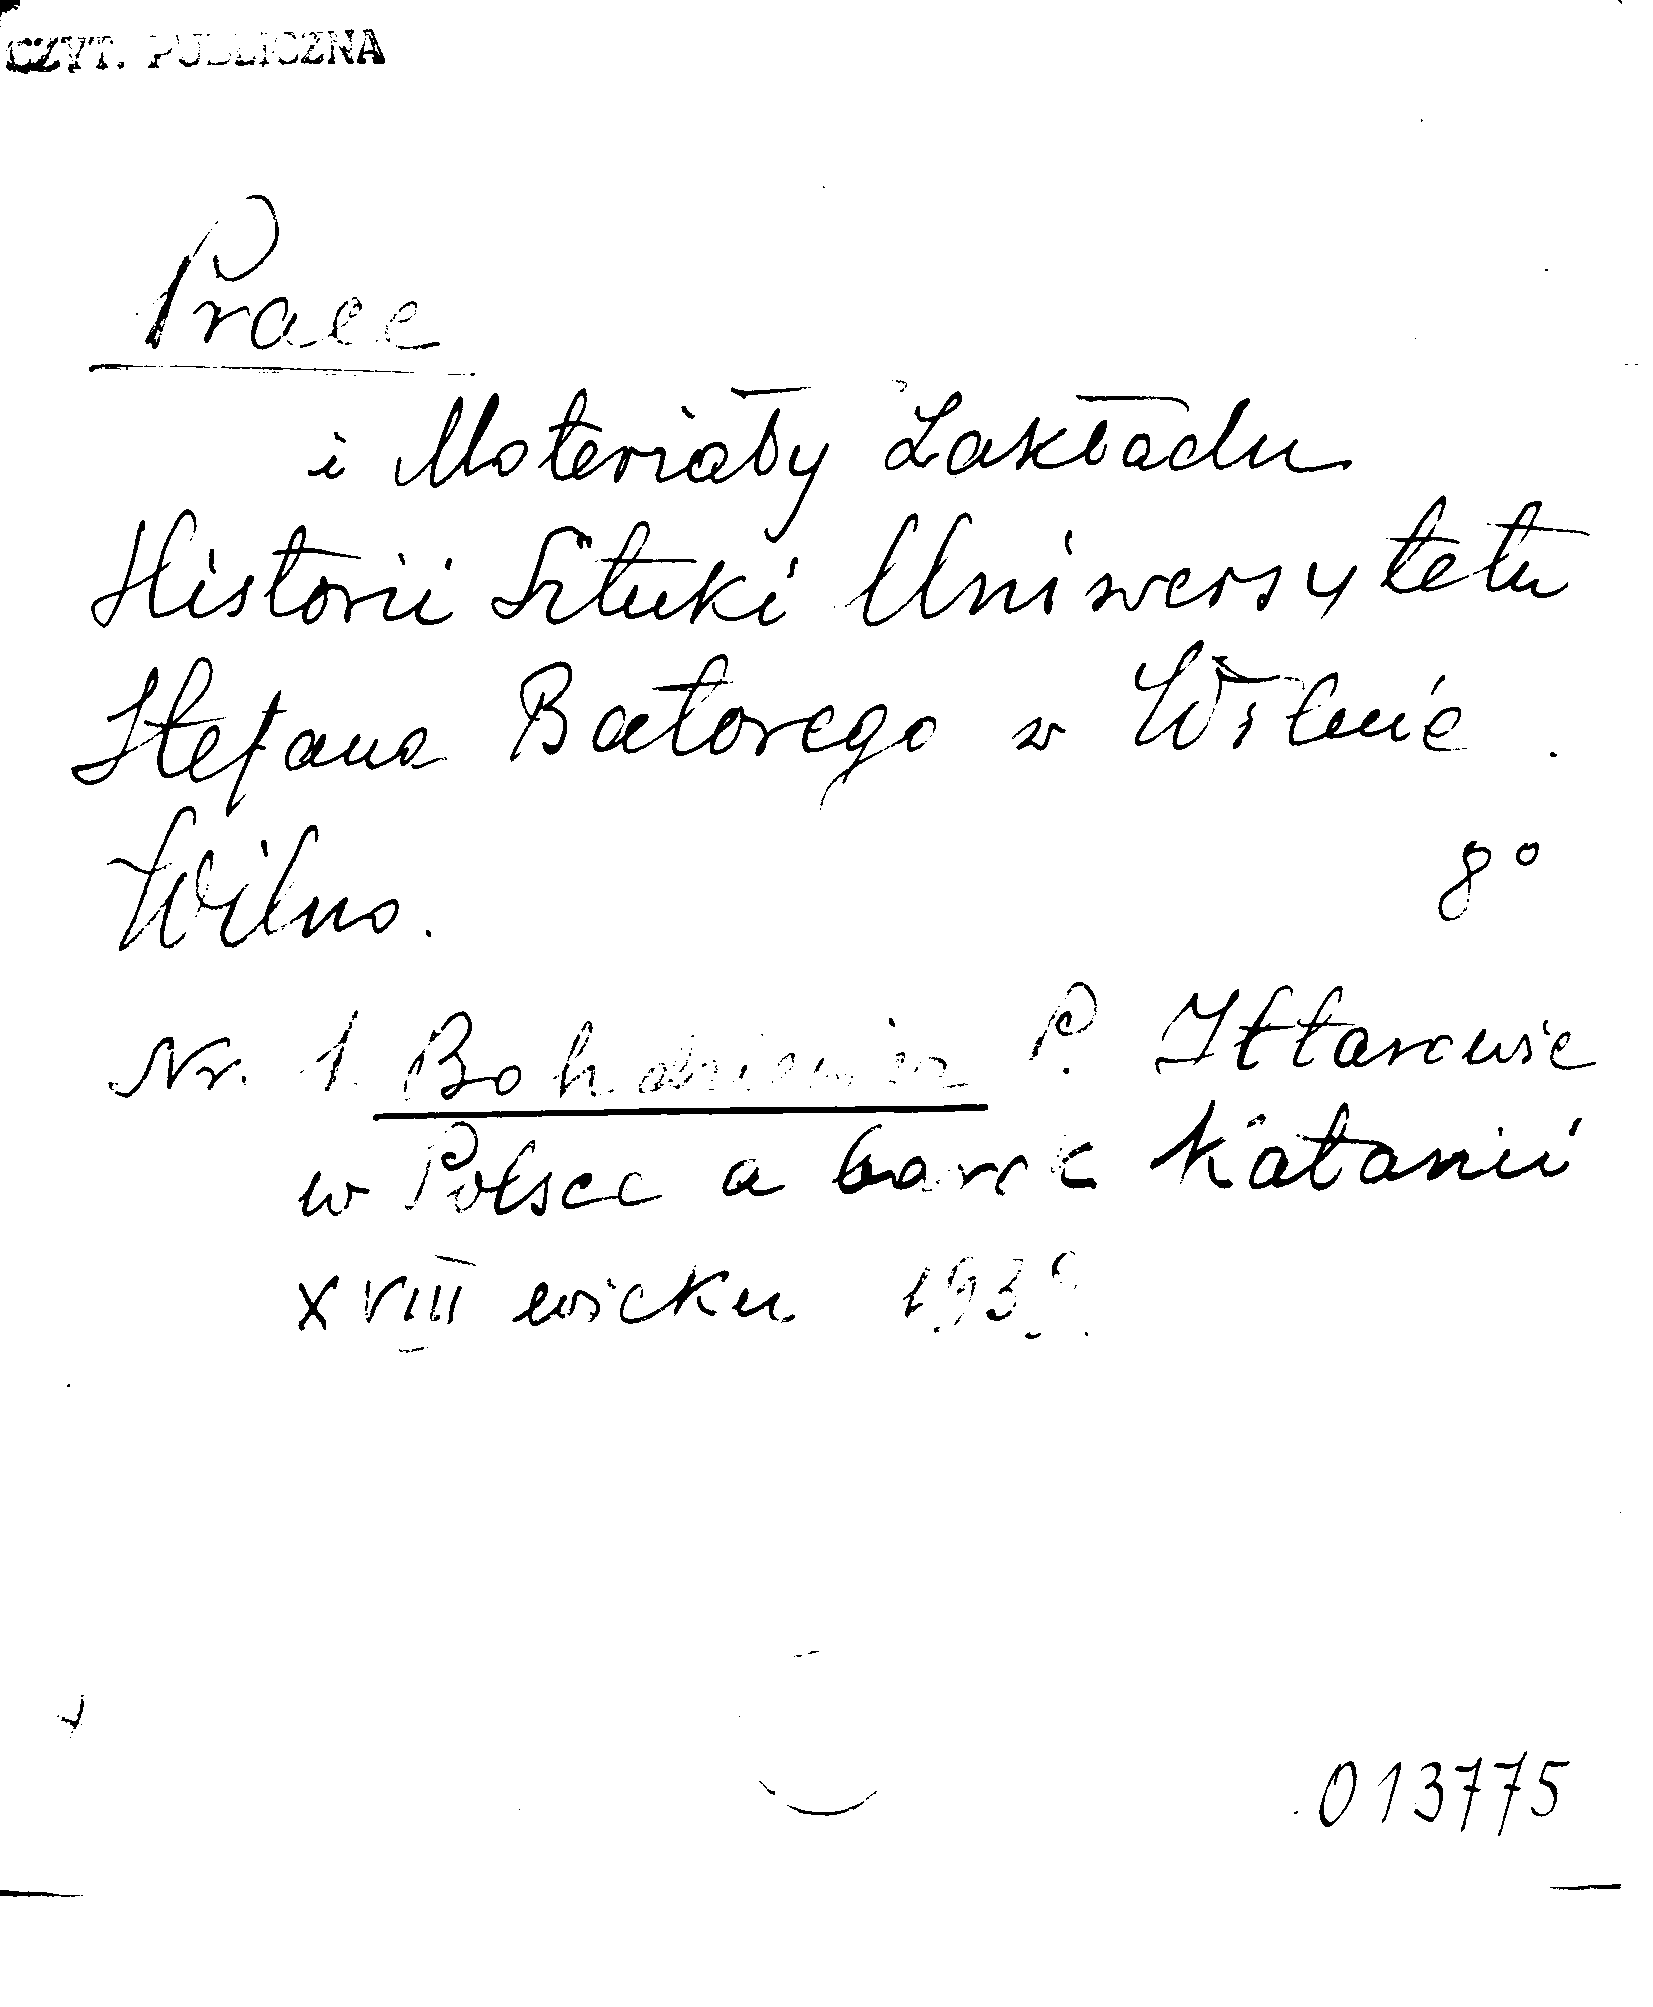 CZYT. PUBLICZNA
Prace
i Materiały Zakładu
Historii Sztuki Uniwersytetu
Stefana Batorego w Wilnie.
Wilno. 8°
Nr. 1. Bohdziewicz P. Ittarowie
w Polsce a barok Katanii
XVIII wieku
013775